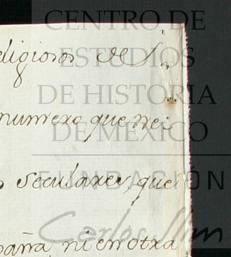 CENTRO DE
ESTUDIOS
DE HISTORIA
DE MEXICO
FUNDACIÓN
Carlos Slim
eligiosos de S.
numero que nei
seculares, que
paña, ni en otra